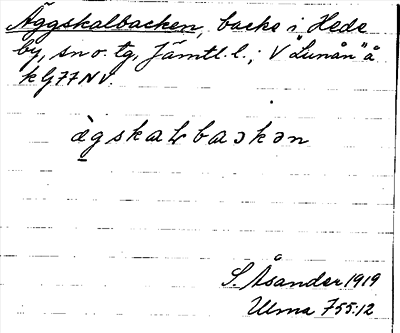 Äggskalbacken, backe i Hede
by, sn o. tg, Jämtl. l.; V "Lunån" å
k G77NV.
ägskaɫbaɔkən
S. Åsander 1919
Ulma 755:12